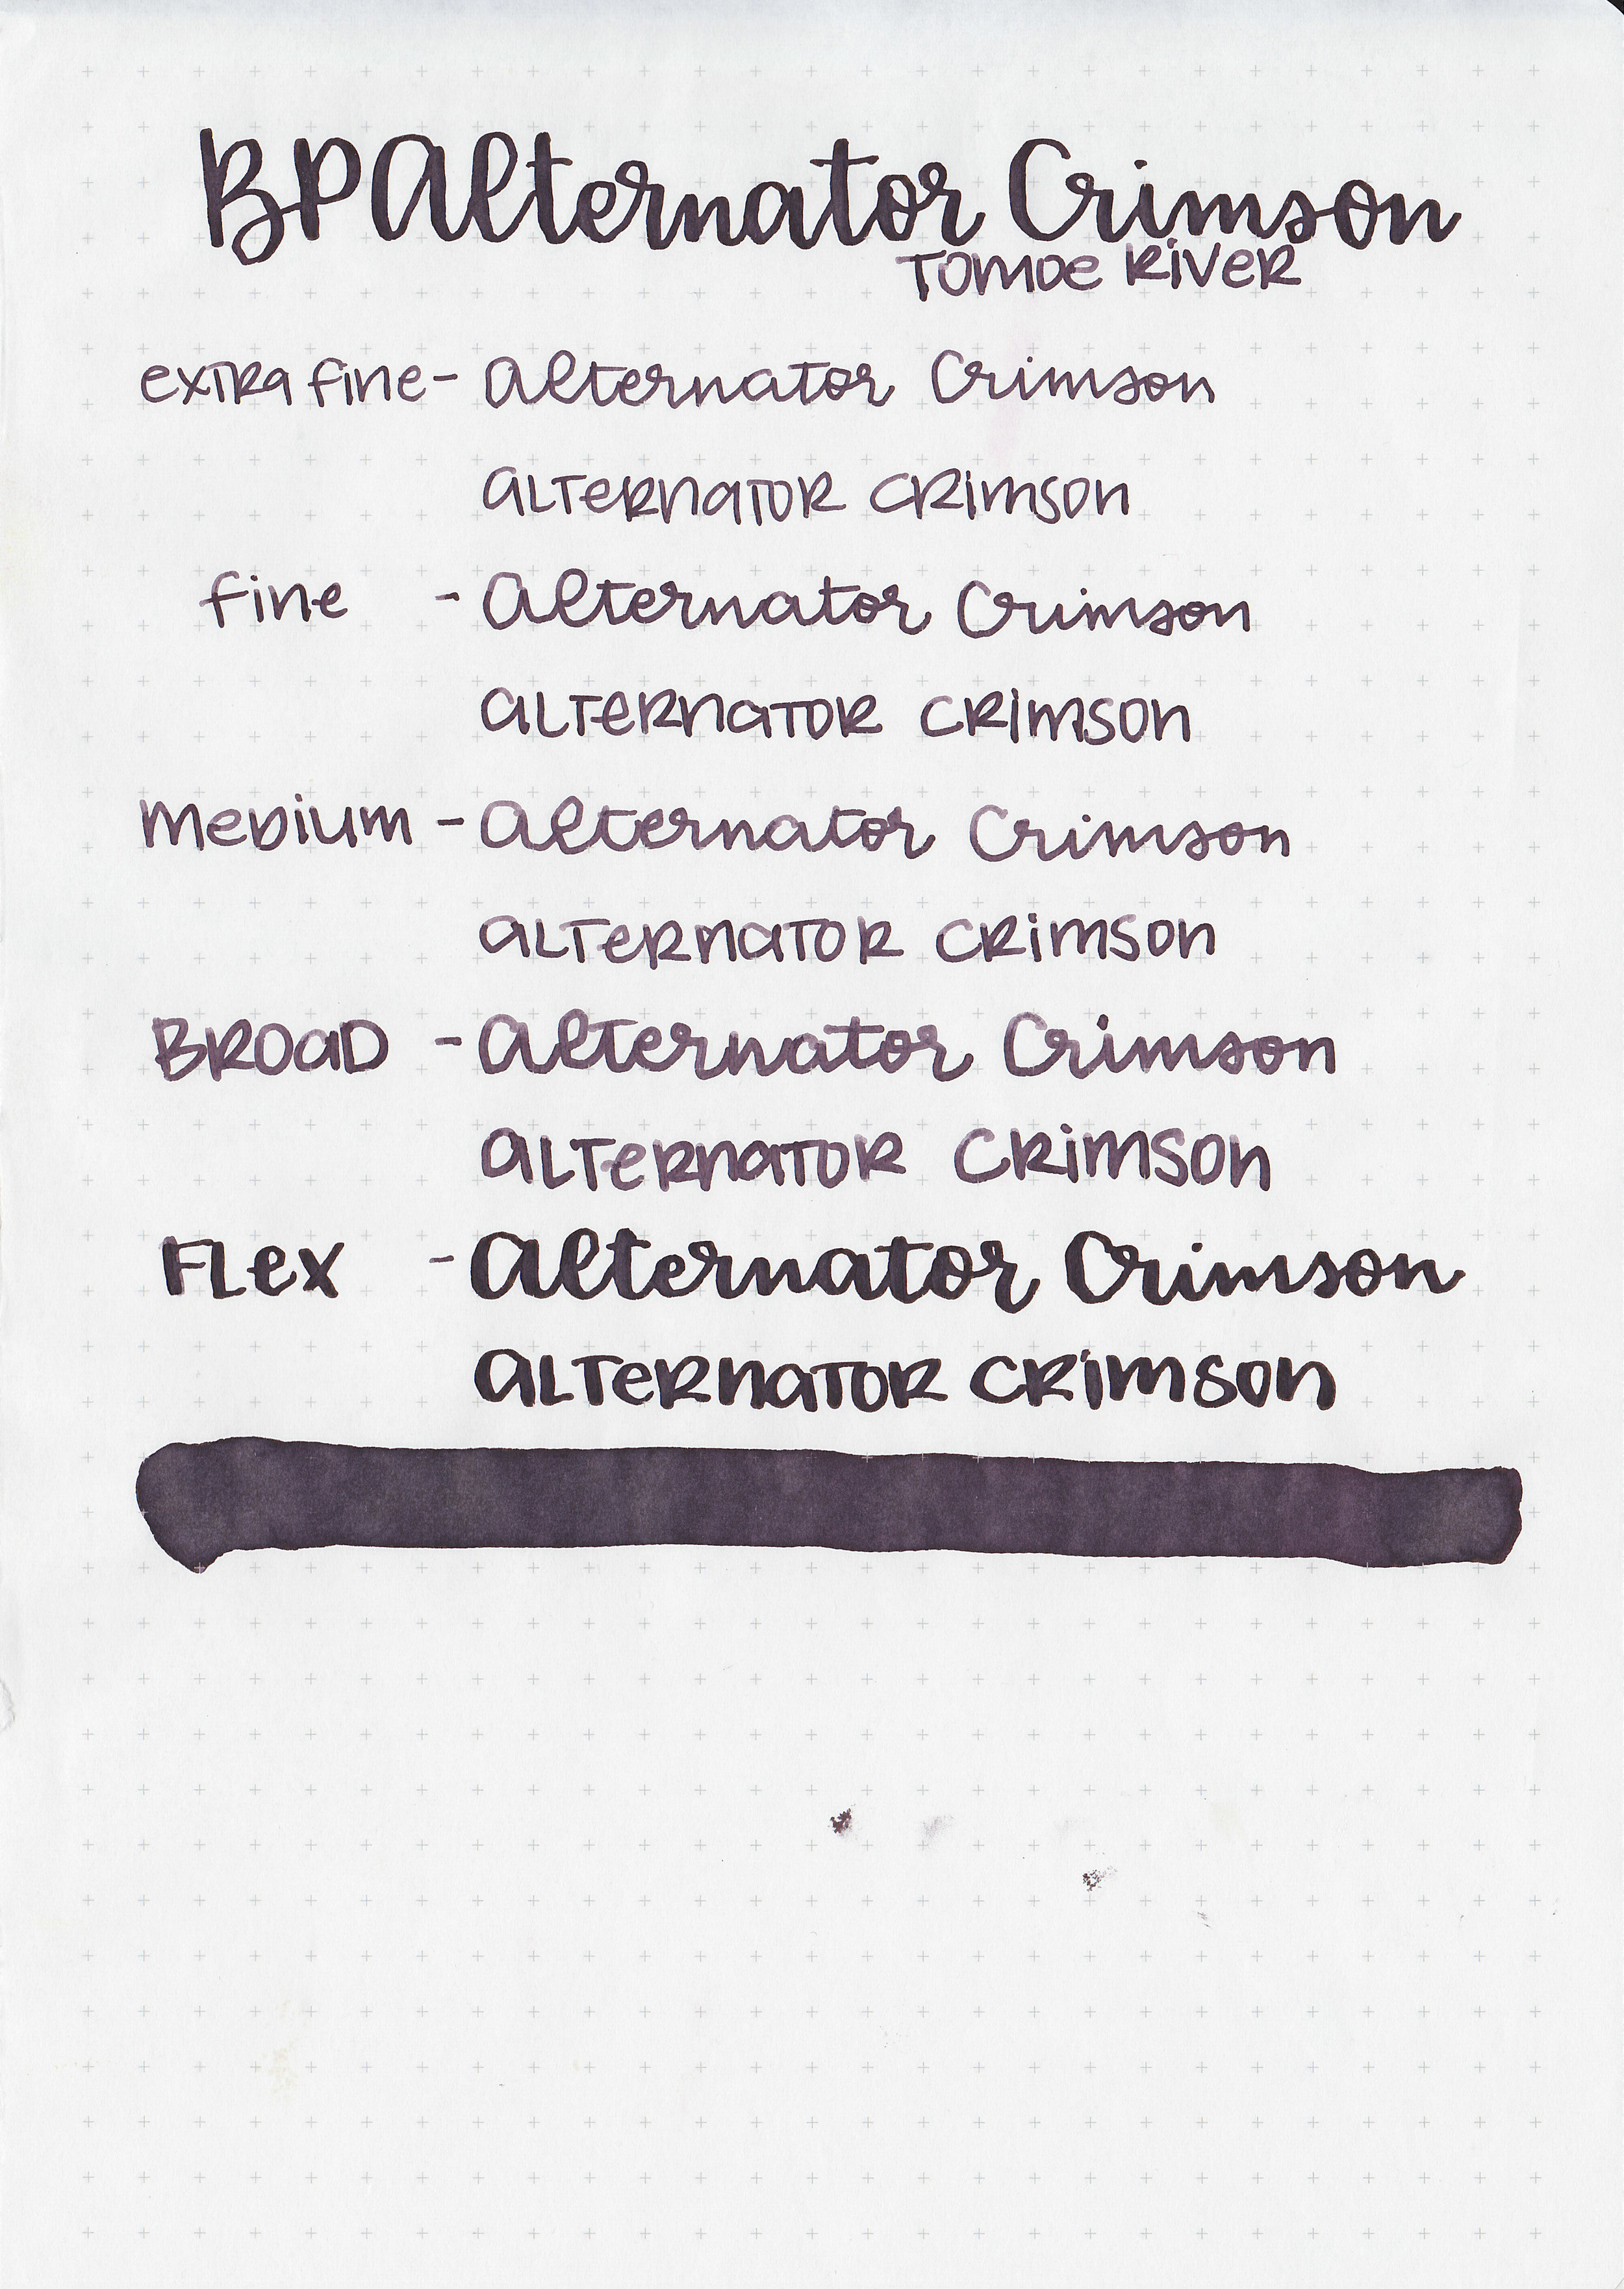 BP Alternator Crimson
Tomoe River
extra fine - Alternator Crimson
Alternator Crimson
fine - Alternator Crimson
Alternator Crimson
Medium - Alternator Crimson
Alternator Crimson
Broad - Alternator Crimson
Alternator Crimson
Flex - Alternator Crimson
Alternator Crimson